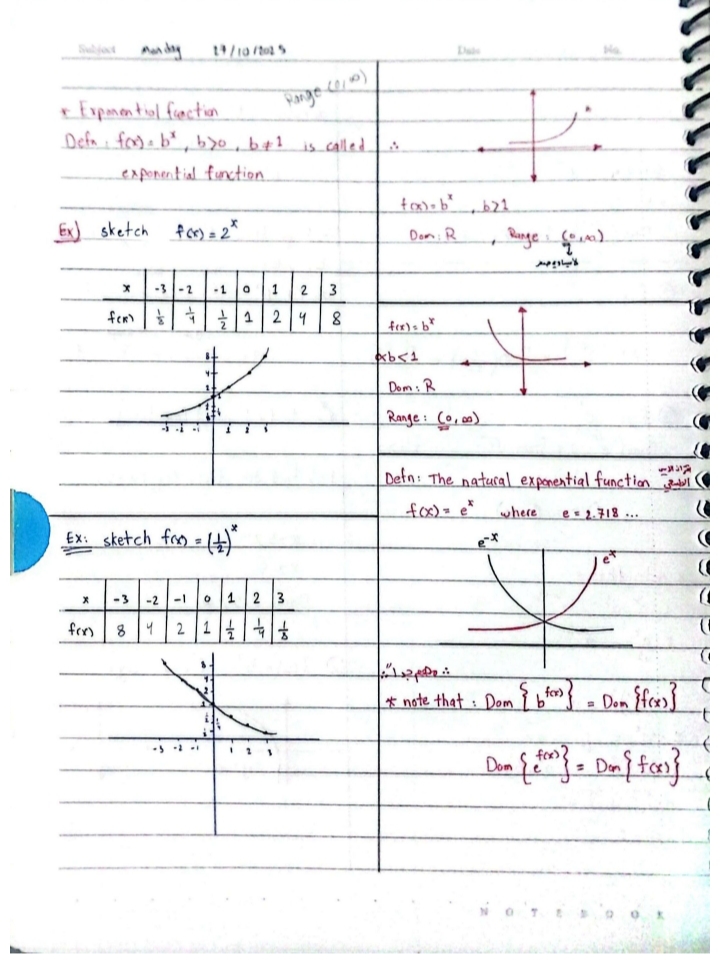 Subject Monday 27/10/2025
Date No.
Range (0,∞)
* Exponential function
Defn: f(x) = bˣ, b>0, b≠1 is called
exponential function
Ex) sketch f(x) = 2ˣ
x -3 -2 -1 0 1 2 3
f(x) 1/8 1/4 1/2 1 2 4 8
8
4
2
1
-3 -2 -1 1 2 3
Ex: sketch f(x) = (1/2)ˣ
x -3 -2 -1 0 1 2 3
f(x) 8 4 2 1 1/2 1/4 1/8
8
4
2
1
-3 -2 -1 1 2 3
∴
f(x) = bˣ, b>1
Dom: R, Range: (0,∞)
f(x) = bˣ
0<b<1
Dom: R
Range: (0,∞)
Defn: The natural exponential function
f(x) = eˣ where e = 2.718 ...
e⁻ˣ
eˣ
* note that: Dom {b^f(x)} = Dom {f(x)}
Dom {e^f(x)} = Dom {f(x)}
NOTEBOOK